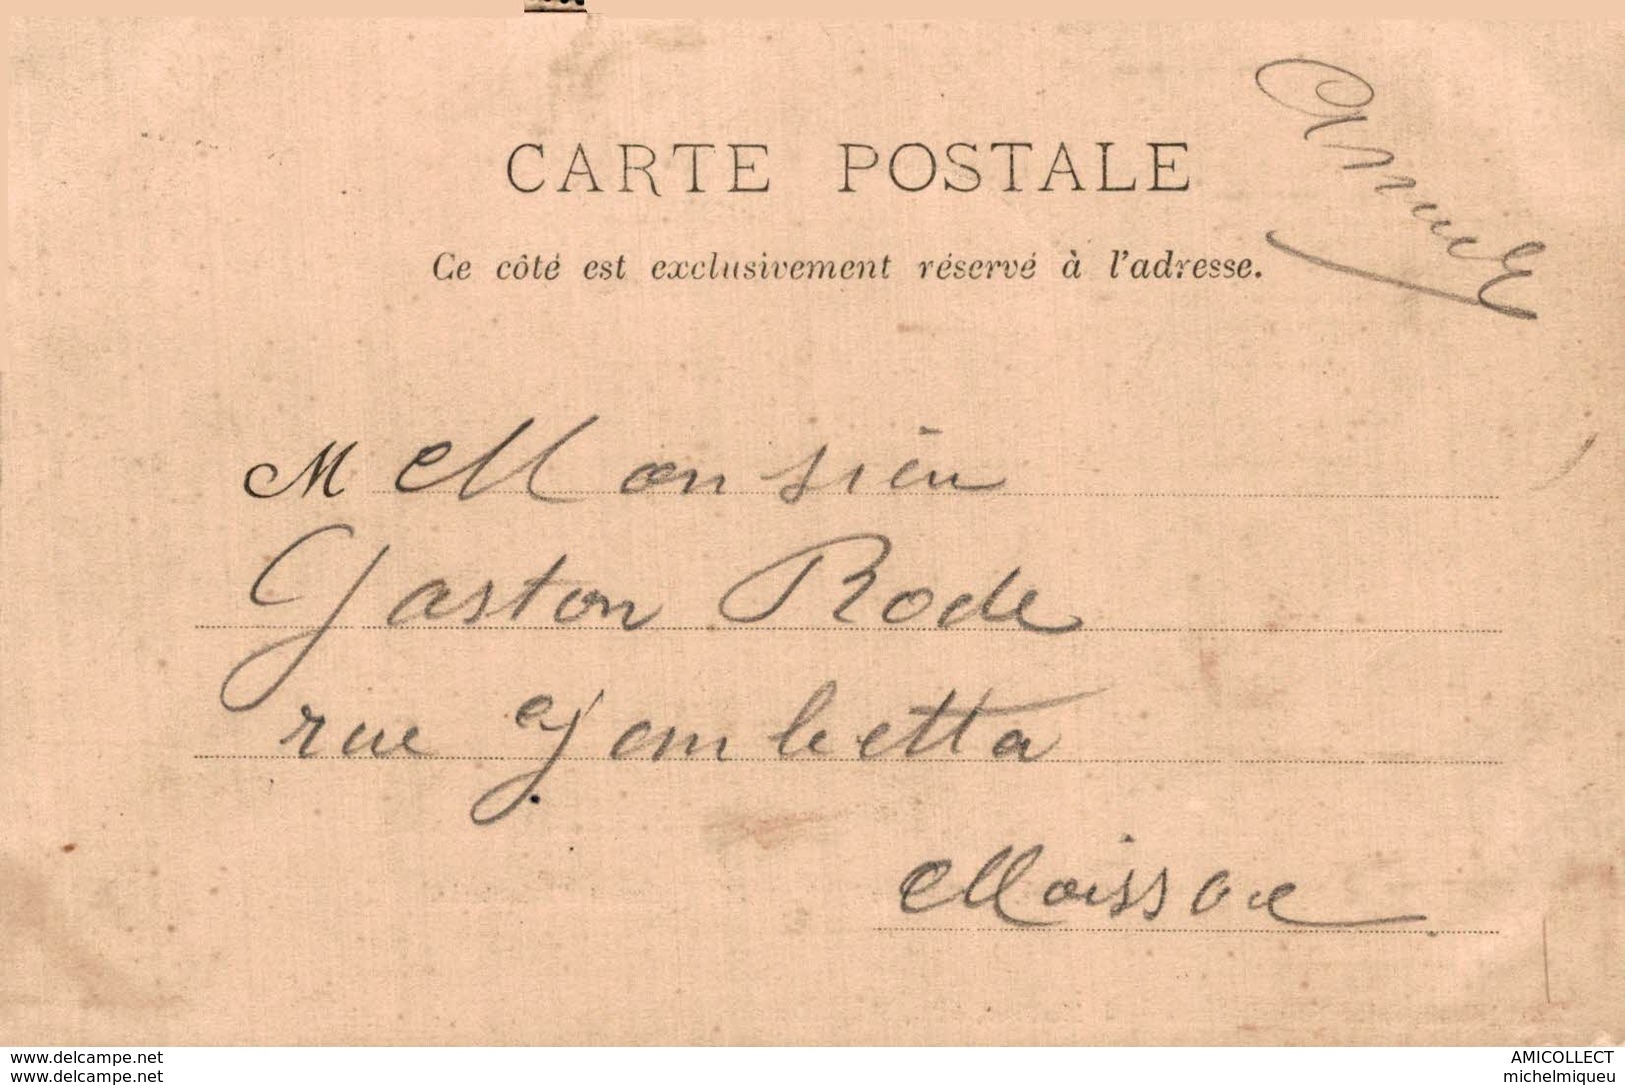 CARTE POSTALE
Ce côté est exclusivement réservé à l'adresse.
M Monsieu
Gaston Rode
rue Gambetta
Moissac
www.delcampe.net AMICOLLECT
www.delcampe.net michelmiqueu